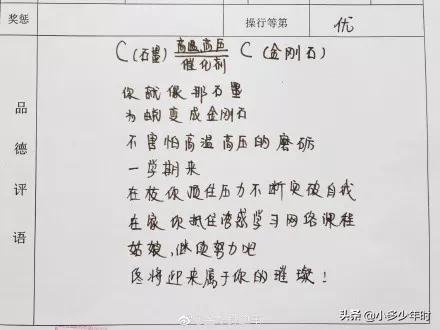 奖惩
操行等第
优
高温、高压
C(石墨) C(金刚石)
催化剂
品德评语
你就像那石墨
为蜕变成金刚石
不害怕高温高压的磨砺
一学期来
在校你顶住压力不断突破自我
在家你抵住诱惑学习网络课程
姑娘,继续努力吧
终将迎来属于你的璀璨!
头条 @小多少年时